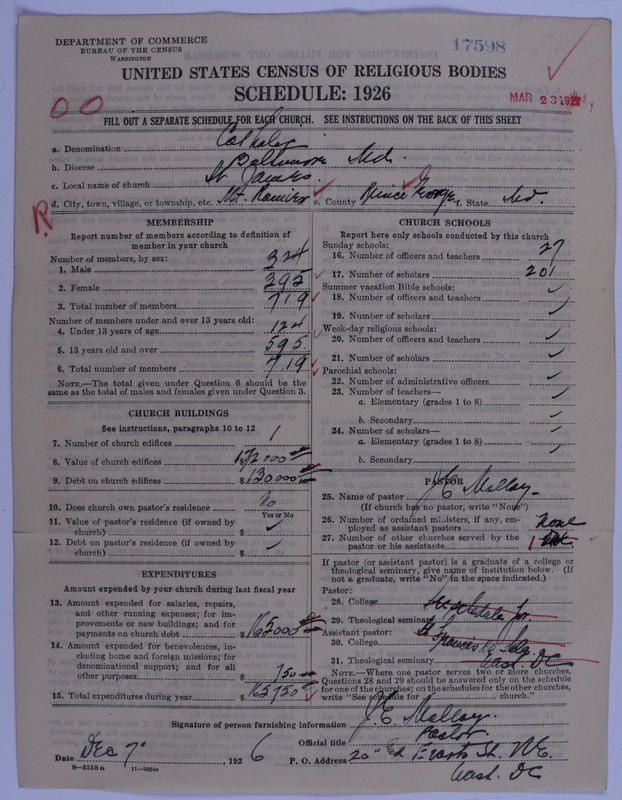 DEPARTMENT OF COMMERCE
BUREAU OF THE CENSUS
WASHINGTON
17598
UNITED STATES CENSUS OF RELIGIOUS BODIES
SCHEDULE: 1926
MAR 23 192
OO
FILL OUT A SEPARATE SCHEDULE FOR EACH CHURCH. SEE INSTRUCTIONS ON THE BACK OF THIS SHEET
a. Denomination Catholic
b. Diocese Baltimore Md.
c. Local name of church St James
d. City, town, village, or township, etc. Mt. Ranier e. County Prince George f. State Md.
R
MEMBERSHIP
Report number of members according to definition of
member in your church
Number of members, by sex:
1. Male 324
2. Female 395
3. Total number of members 719
Number of members under and over 13 years old:
4. Under 13 years of age 124
5. 13 years old and over 595
6. Total number of members 719
NOTE.—The total given under Question 6 should be the
same as the total of males and females given under Question 3.
CHURCH BUILDINGS
See instructions, paragraphs 10 to 12
7. Number of church edifices 1
8. Value of church edifices $172000
9. Debt on church edifices $130,000
10. Does church own pastor's residence No
Yes or No
11. Value of pastor's residence (if owned by
church) $
12. Debt on pastor's residence (if owned by
church) $
EXPENDITURES
Amount expended by your church during last fiscal year
13. Amount expended for salaries, repairs,
and other running expenses; for im-
provements or new buildings; and for
payments on church debt $165000
14. Amount expended for benevolences, in-
cluding home and foreign missions; for
denominational support; and for all
other purposes 750
15. Total expenditures during year $165750
CHURCH SCHOOLS
Report here only schools conducted by this church
Sunday schools:
16. Number of officers and teachers 27
17. Number of scholars 201
Summer vacation Bible schools:
18. Number of officers and teachers
19. Number of scholars
Week-day religious schools:
20. Number of officers and teachers
21. Number of scholars
Parochial schools:
22. Number of administrative officers
23. Number of teachers—
a. Elementary (grades 1 to 8)
b. Secondary
24. Number of scholars—
a. Elementary (grades 1 to 8)
b. Secondary
PASTOR
25. Name of pastor J E Malloy
(If church has no pastor, write "None")
26. Number of ordained ministers, if any, em-
ployed as assistant pastors None
27. Number of other churches served by the
pastor or his assistants 1
If pastor (or assistant pastor) is a graduate of a college or
theological seminary, give name of institution below. (If
not a graduate, write "No" in the space indicated.)
Pastor:
28. College See schedule for
29. Theological seminary
Assistant pastor: St Francis de Sales
30. College
31. Theological seminary Wash. DC
NOTE.—Where one pastor serves two or more churches,
Questions 28 and 29 should be answered only on the schedule
for one of the churches; on the schedules for the other churches,
write "See schedule for church."
Signature of person furnishing information J.E. Malloy
Official title Pastor
Date Dec 7 1926 P. O. Address 20 Evarts St. NE.
Wash. DC
8—5518a 11—9664a